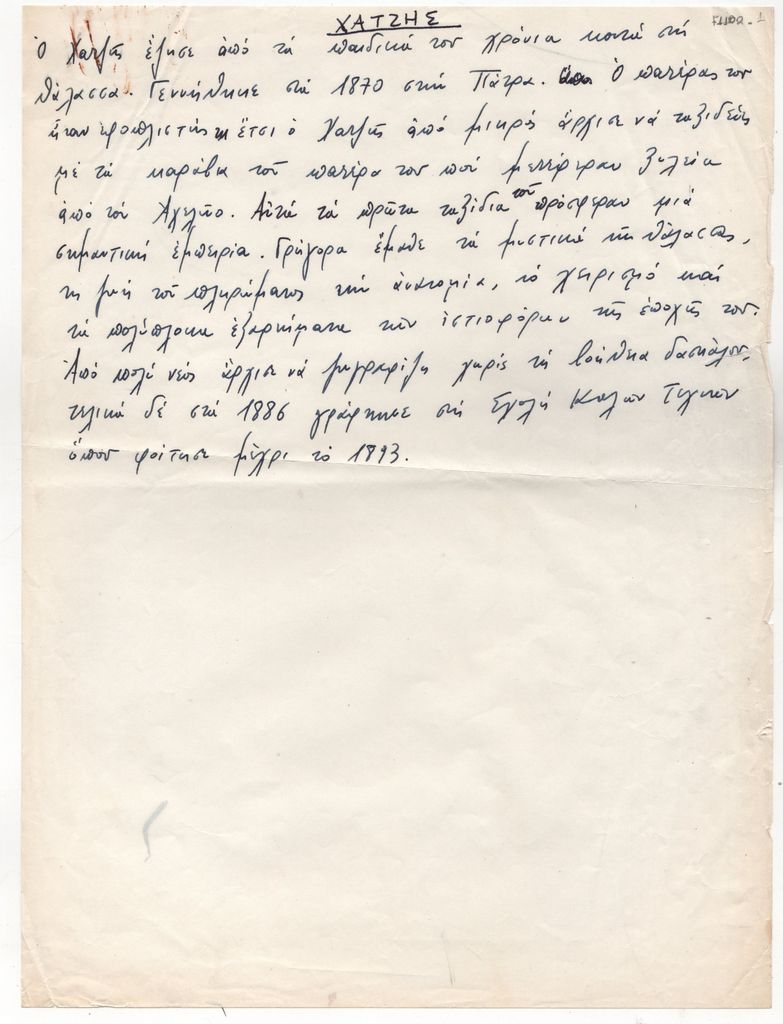 ΧΑΤΖΗΣ
Ὁ Χατζῆς ἔζησε ἀπό τά παιδικά του χρόνια κοντά στή
θάλασσα. Γεννήθηκε στά 1870 στήν Πάτρα. Ὁ πατέρας του
ἦταν ἐφοπλιστής κι ἔτσι ὁ Χατζῆς ἀπό μικρός ἄρχισε νά ταξιδεύῃ
μέ τά καράβια τοῦ πατέρα του πού μετέφεραν ξυλεία
ἀπό τόν Ἀχελῶο. Αὐτά τά πρῶτα ταξίδια τοῦ πρόσφεραν μιά
σημαντική ἐμπειρία. Γρήγορα ἔμαθε τά μυστικά τῆς θάλασσας,
τή ζωή τοῦ πληρώματος τήν ἀνατομία, τό χειρισμό καί
τά πολύπλοκα ἐξαρτήματα τῶν ἱστιοφόρων τῆς ἐποχῆς του.
Ἀπό πολύ νέος ἄρχισε νά ζωγραφίζῃ χωρίς τή βοήθεια δασκάλου,
τελικά δέ στά 1886 γράφτηκε στή Σχολή Καλῶν Τεχνῶν
ὅπου φοίτησε μέχρι τό 1893.